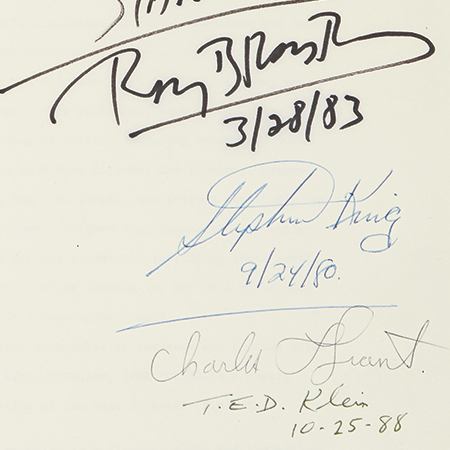 Ray Bradbury
3/28/83
Stephen King
9/24/80.
Charles L. Grant.
T.E.D. Klein
10-25-88